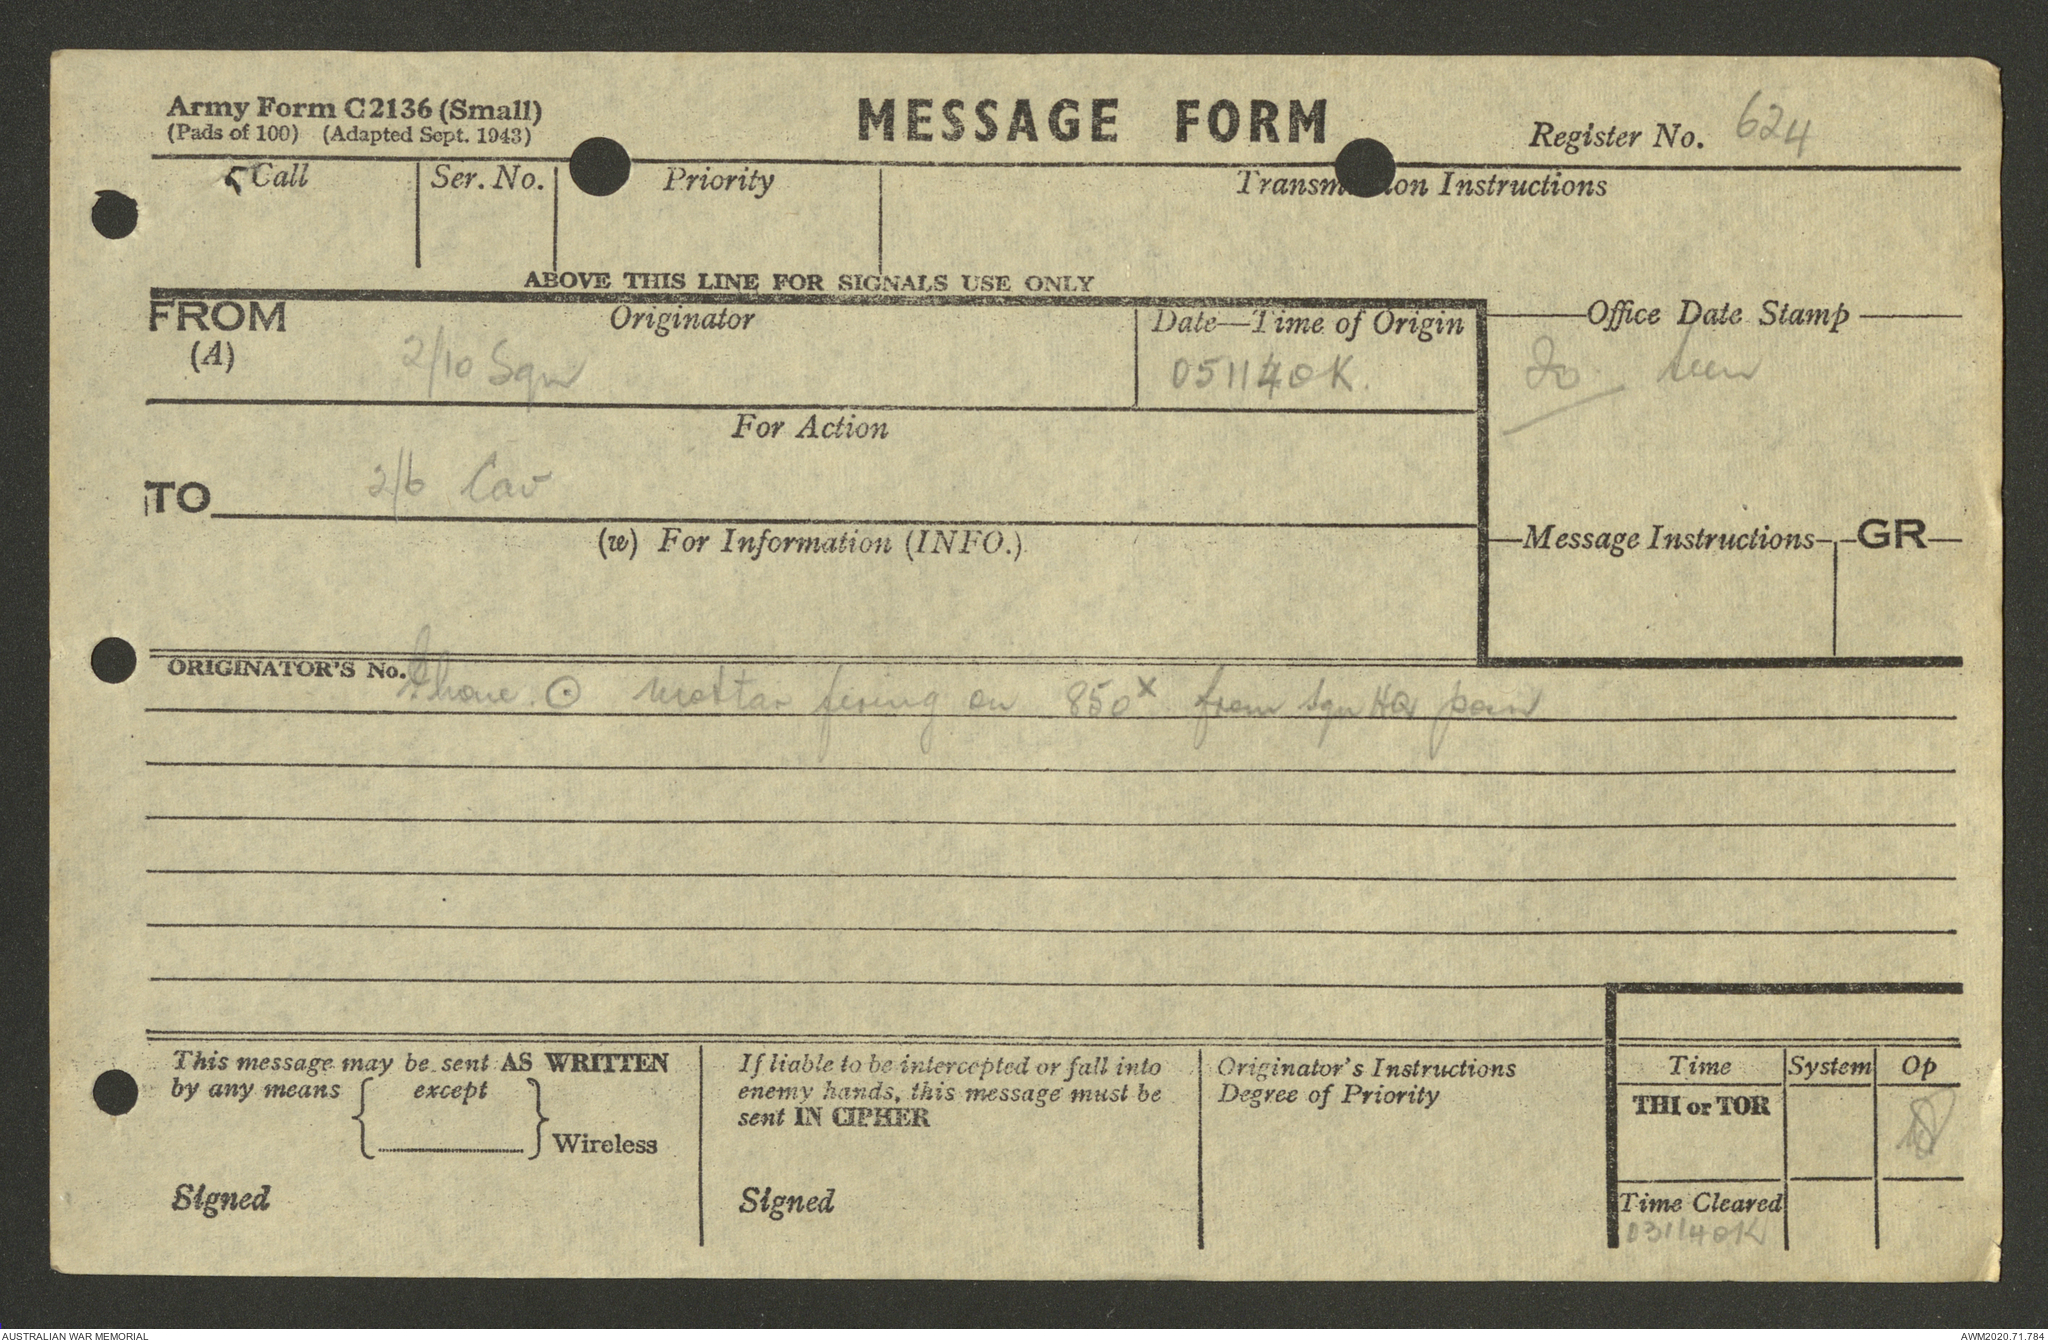 Army Form C2136 (Small)
(Pads of 100) (Adapted Sept. 1943)
MESSAGE FORM
Register No. 624
Call
Ser. No.
Priority
Transm on Instructions
ABOVE THIS LINE FOR SIGNALS USE ONLY
FROM
(A)
Originator
2/10 Sqn
Date—Time of Origin
051140K.
Office Date Stamp
For Action
TO
2/6 Cav
(w) For Information (INFO.)
Message Instructions
GR
ORIGINATOR'S No.
Phone ⊙ Mortar firing on 850x from Sqn HQ
This message may be sent AS WRITTEN
by any means { except
} Wireless
Signed
If liable to be intercepted or fall into
enemy hands, this message must be
sent IN CIPHER
Signed
Originator's Instructions
Degree of Priority
Time System Op
THI or TOR
Time Cleared
031140K
AUSTRALIAN WAR MEMORIAL
AWM2020.71.784